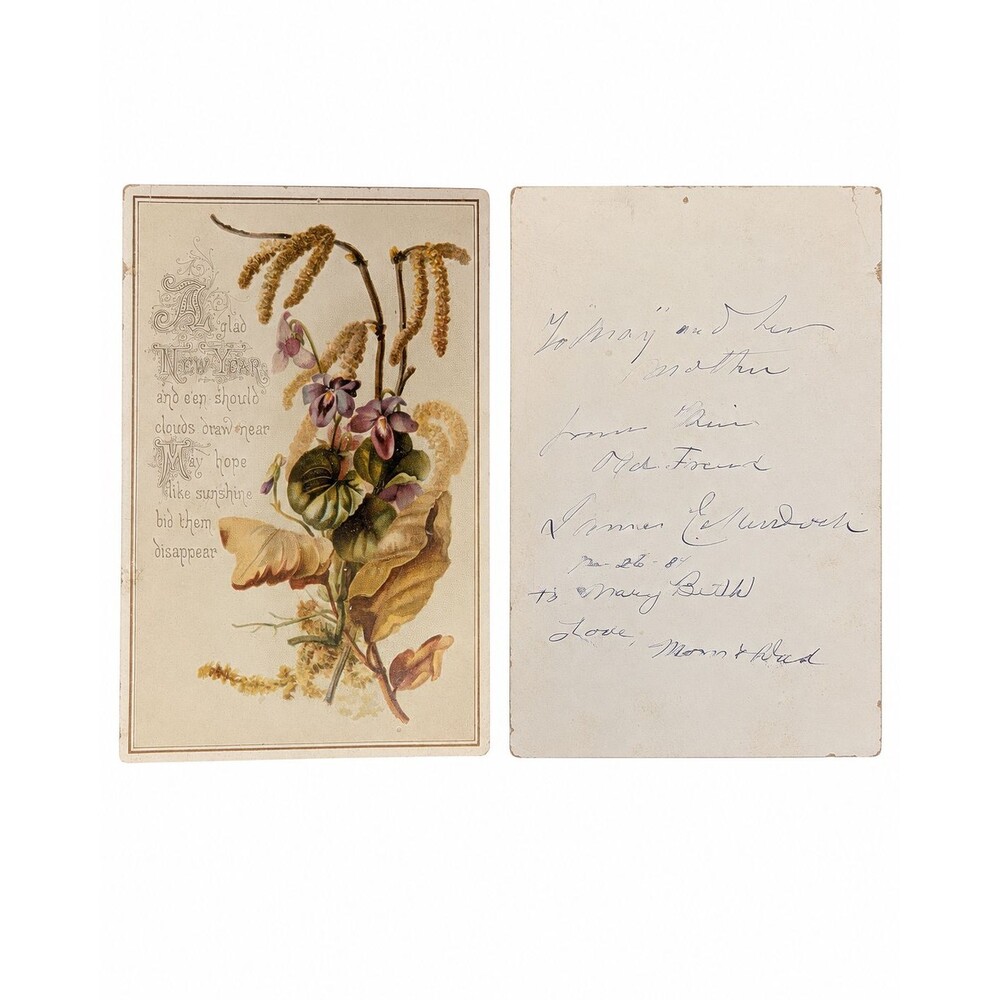 A glad
NEW YEAR
and e'en should
clouds draw near
May hope
like sunshine
bid them
disappear
To "May" and her
mother
from Their
Old Friend
James E. Murdoch
26 - 8
to Mary Beth
Love,
Mom & Dad